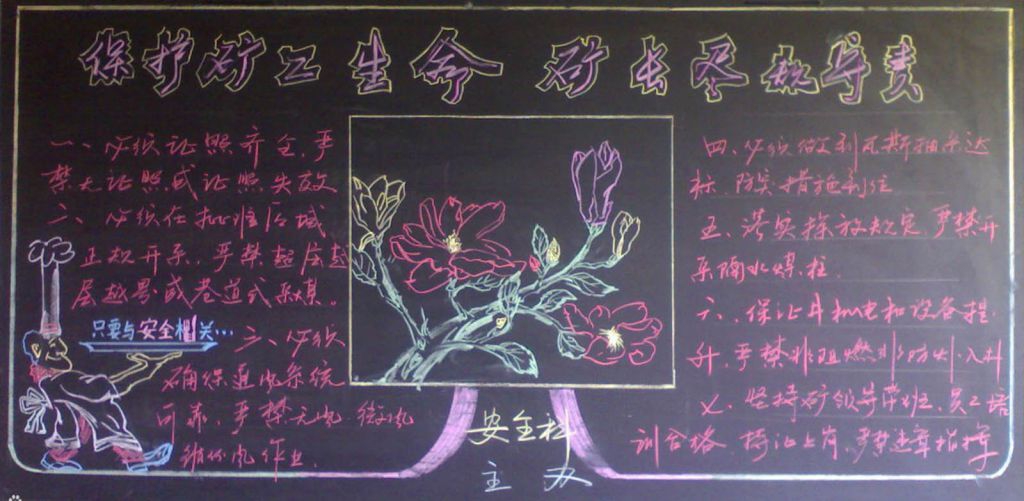 保护矿工生命 矿长尽职尽责
一、必须证照齐全,严
禁无证照或证照失效
二、必须在批准区域
正规开采,严禁超层越
层越界或巷道式采煤。
只要与安全相关…
三、必须
确保通风系统
可靠,严禁无风、微风
循环风作业.
四、必须做到瓦斯抽采达
标,防突措施到位
五、落实探放规定,严禁开
采隔水煤柱.
六、保证井机电和设备提
升,严禁非阻燃非防灯入井
七、坚持矿领导带班,员工培
训合格 持证上岗,严禁违章指挥
安全科
主 办